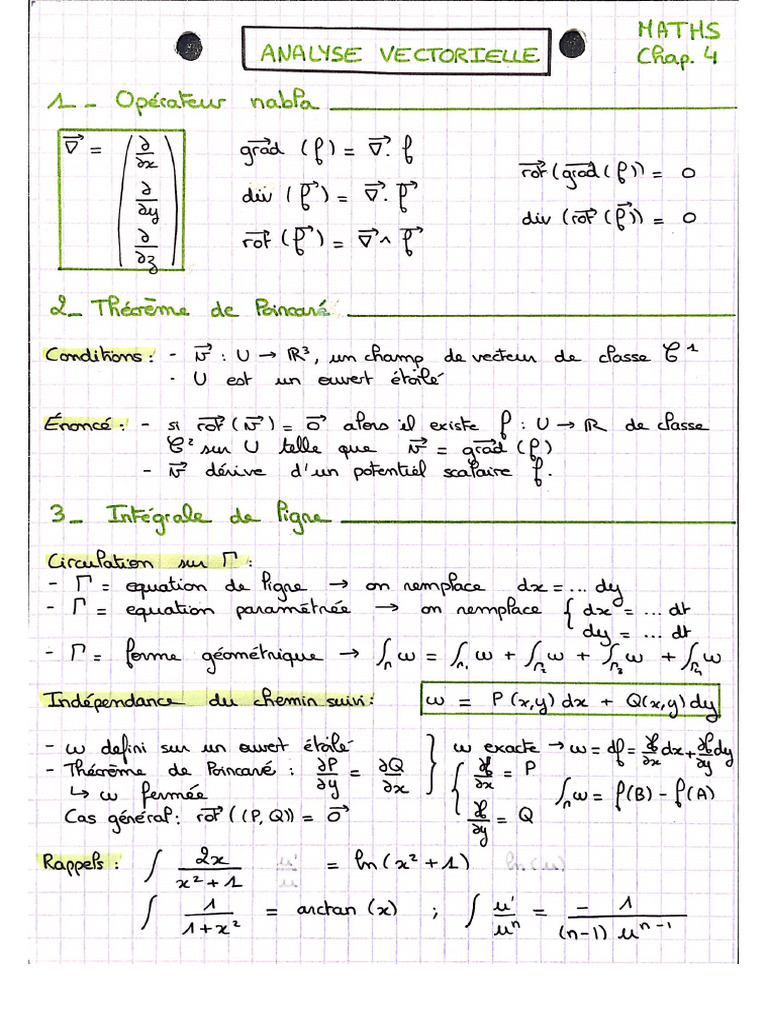 MATHS
ANALYSE VECTORIELLE
Chap. 4
1 - Opérateur nabla
∇⃗ = (∂/∂x, ∂/∂y, ∂/∂z)
grad⃗ (f) = ∇⃗. f
div (f⃗) = ∇⃗. f⃗
rot⃗ (f⃗) = ∇⃗ ∧ f⃗
rot⃗ (grad⃗ (f)) = 0
div (rot⃗ (f⃗)) = 0
2 - Théorème de Poincaré
Conditions : - v⃗ : U → ℝ³, un champ de vecteur de classe C¹
- U est un ouvert étoilé
Énoncé : - si rot⃗ (v⃗) = 0⃗ alors il existe f : U → ℝ de classe
C² sur U telle que v⃗ = grad⃗ (f)
- v⃗ dérive d'un potentiel scalaire f.
3 - Intégrale de ligne
Circulation sur Γ :
- Γ = equation de ligne → on remplace dx = ... dy
- Γ = equation paramétrée → on remplace { dx = ... dt
dy = ... dt
- Γ = forme géométrique → ∫Γ ω = ∫Γ₁ ω + ∫Γ₂ ω + ∫Γ₃ ω + ∫Γ₄ ω
Indépendance du chemin suivi : ω = P(x,y) dx + Q(x,y) dy
- ω defini sur un ouvert étoilé
- Théorème de Poincaré : ∂P/∂y = ∂Q/∂x
↳ ω fermée
Cas général : rot⃗ ((P, Q)) = 0⃗
} ω exacte → ω = df = ∂f/∂x dx + ∂f/∂y dy
{ ∂f/∂x = P
∂f/∂y = Q
∫Γ ω = f(B) - f(A)
Rappels : ∫ 2x/(x² + 1) u'/u = ln(x² + 1) ln(u)
∫ 1/(1 + x²) = arctan (x) ; ∫ u'/uⁿ = - 1/((n-1) uⁿ⁻¹)